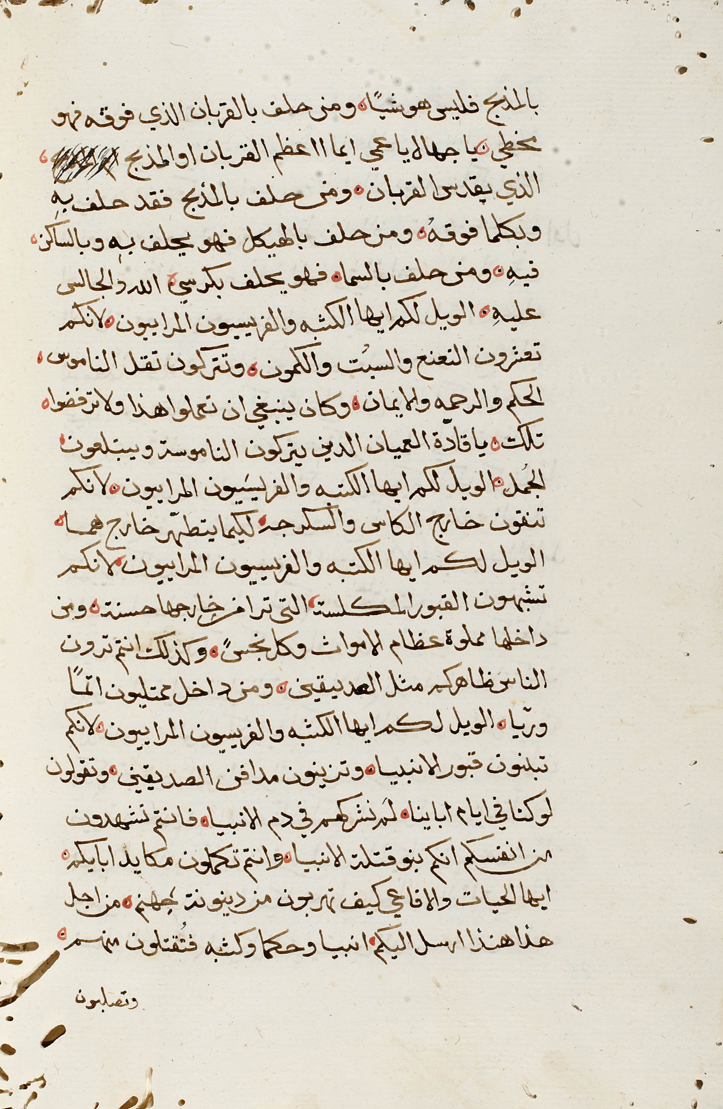 بالمذبح فليس هو شيًا ومن حلف بالقربان الذي فوقه فهو
مخطي يا جهال يا عمي ايما اعظم القربان او المذبح
الذي يقدس القربان ومن حلف بالمذبح فقد حلف بهِ
وبكلما فوقهُ ومن حلف بالهيكل فهو يحلف بهِ وبالساكن
فيهِ ومن حلف بالسما فهو يحلف بكرسي الله والجالس
عليهِ الويل لكم ايها الكتبه والفريسيون المراييون لانكم
تعشرون النعنع والسبت والكمون وتتركون ثقل الناموس
الحكم والرحمه والايمان وكان ينبغي ان تعملوا هذا ولا ترفضوا
تلك يا قادة العميان الدين يتركون الناموسة ويبتلعون
الجُمل الويل لكم ايها الكتبه والفريسيون المراييون لانكم
تنقون خارج الكاس والسكرجه ليكما يتطهّر خارجهما
الويل لكم ايها الكتبه والفريسيون المراييون لانكم
تشبهون القبور المكلسة التي ترا من خارجها حسنة ومن
داخلها مملوة عظام الاموات وكل نجسٍ وكذلك انتم ترون
الناس ظاهركم مثل الصديقين ومن داخل ممتليون اثمًا
وريًا الويل لكم ايها الكتبه والفريسيون المراييون لانكم
تبنون قبور الانبيا وتزينون مدافن الصديقين وتقولون
لو كنا في ايام اباينا لم نشركهم في دم الانبيا فانتم تشهدون
من انفسكم انكم بنو قتلة الانبيا وانتم تكملون مكايد ابايكم
ايها الحيات والافاعي كيف تهربون من دينونة جهنم من اجل
هذا هنذا ارسل اليكم انبيا وحكما وكتبه فتُقتلون منهم
وتصلبون